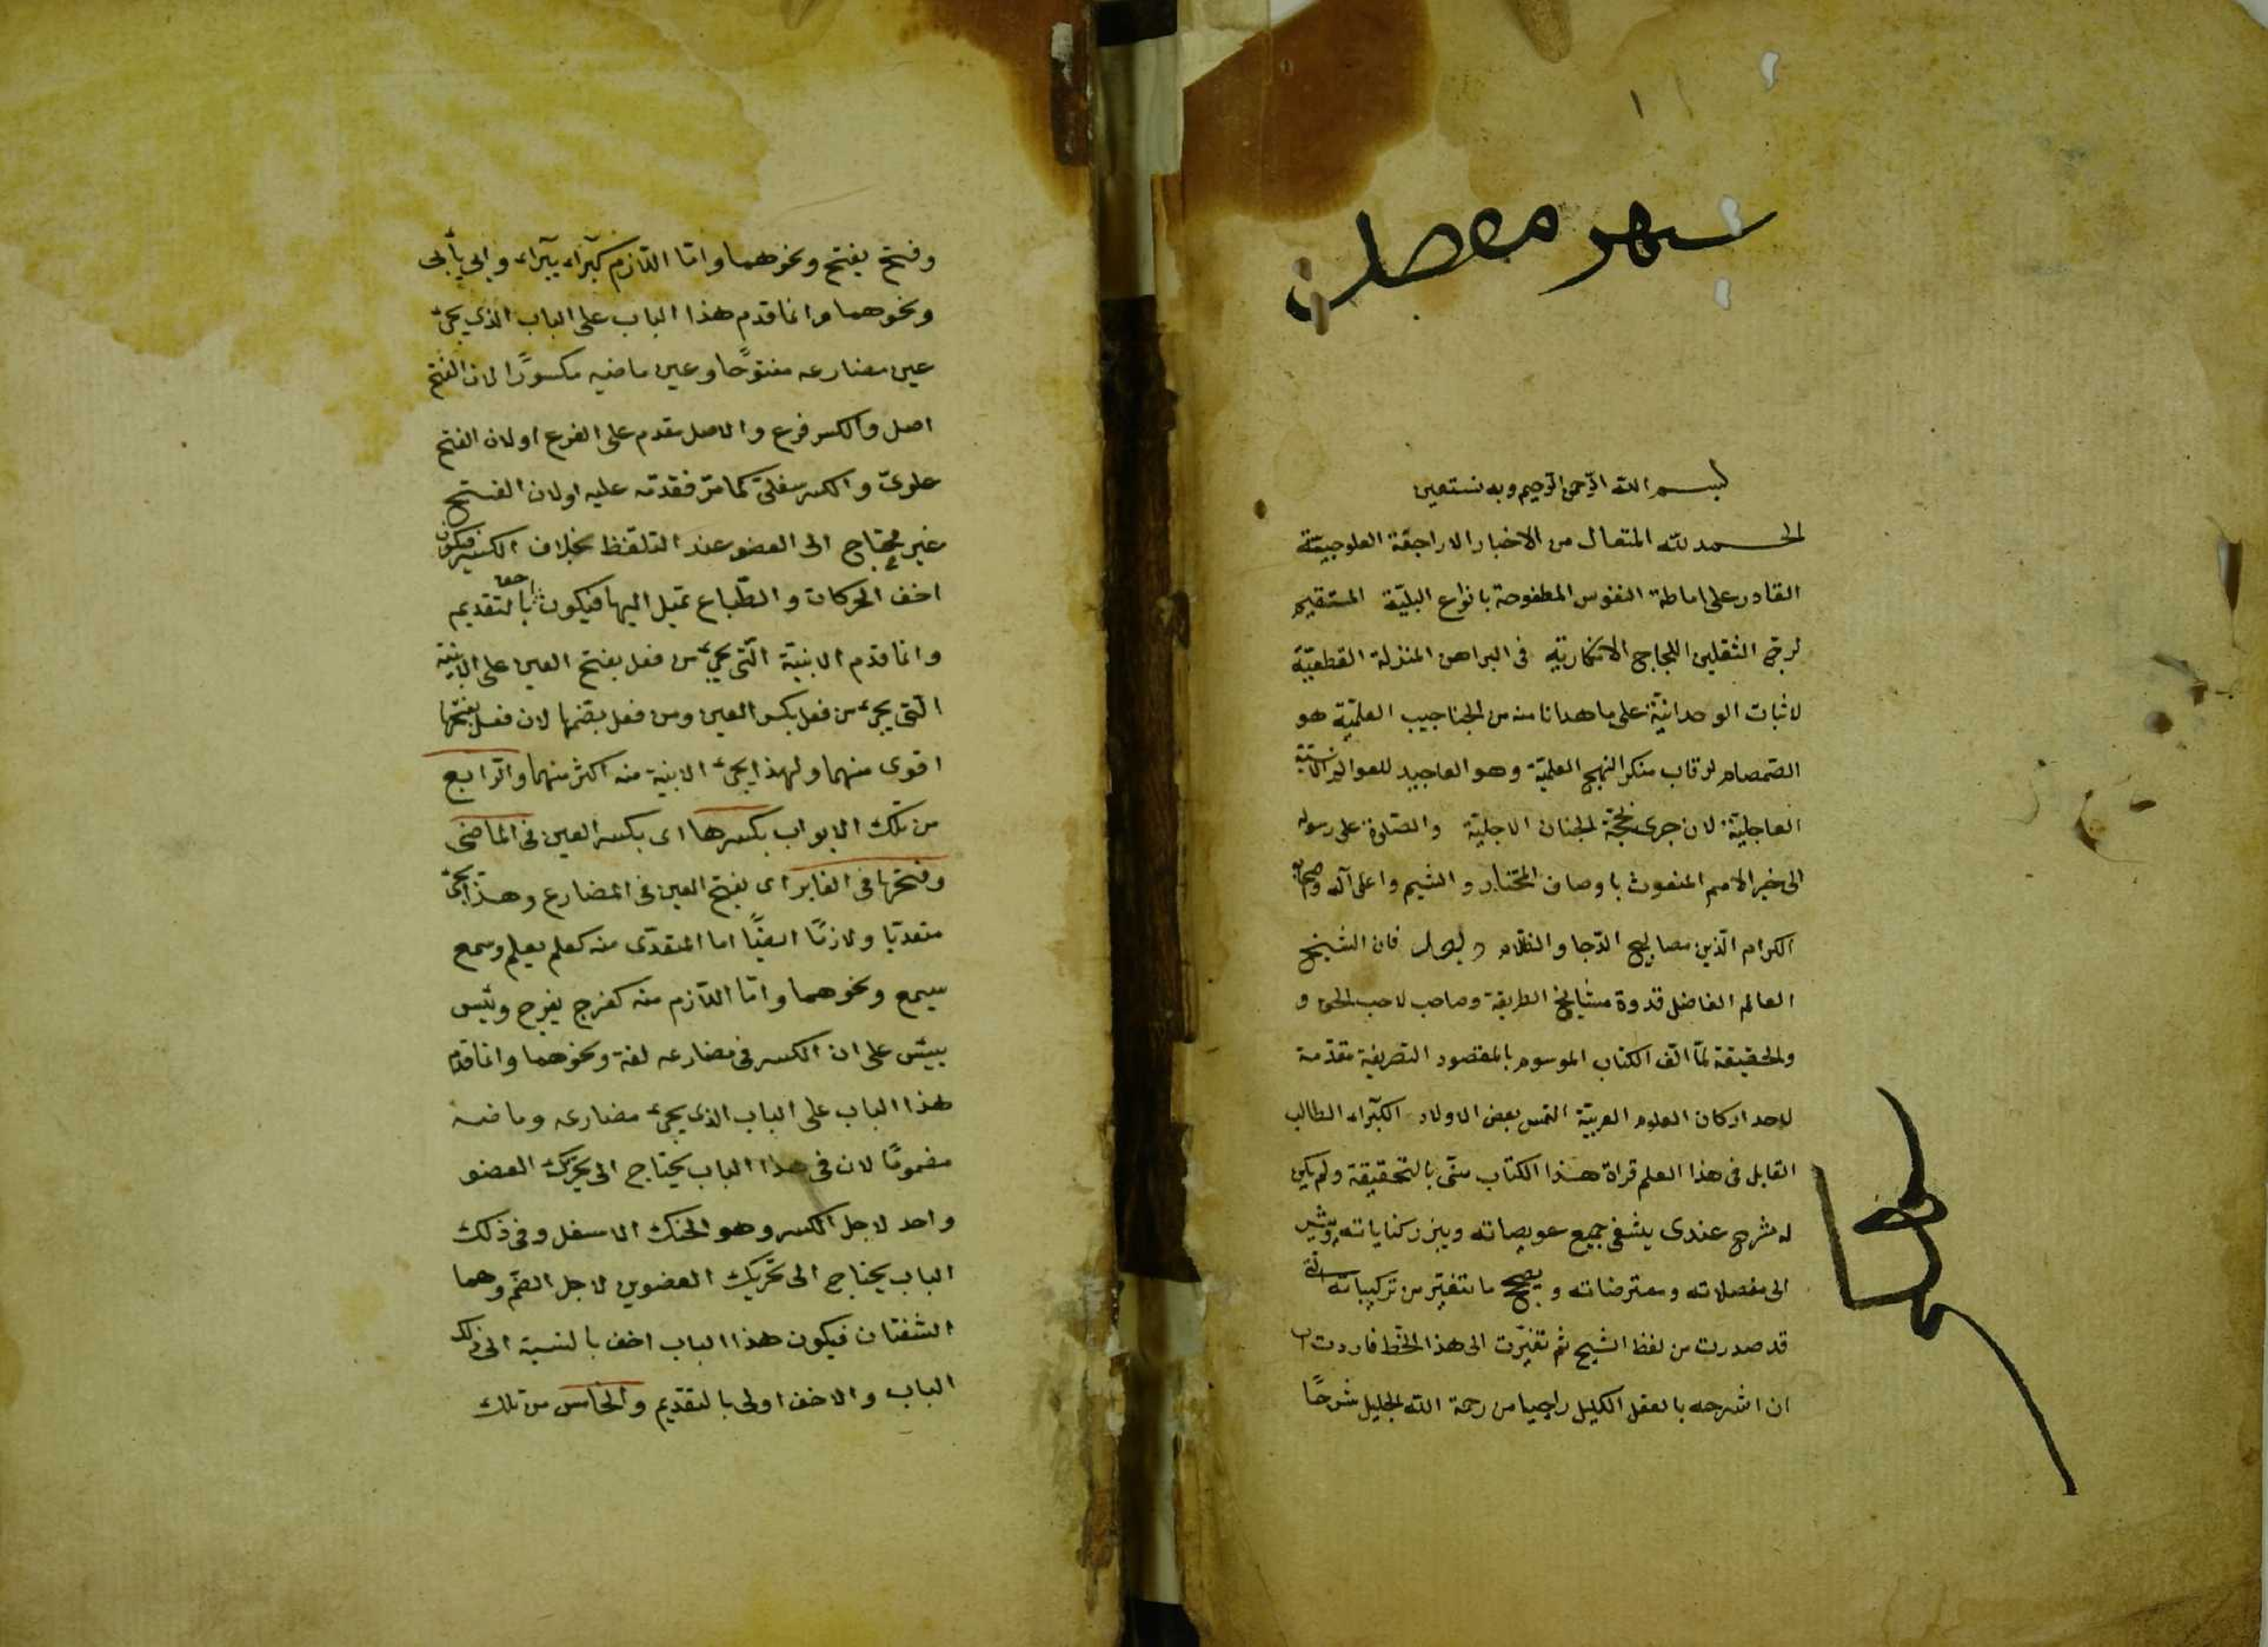 بسم الله الرحمن الرحيم وبه نستعين
الحمد لله المتعال من الاخبار الاراجفة
القادر على اماطة النفوس المطفوحة بانواع البليّة المستقيم
الثقلين اللجاج الانكارية فى البراهن المنزلة القطعيّة
لاثبات الوحدانيّة على ما هدانا منه من العلميّة هو
الصّمصام لرقاب منكر النهج العلميّة وهو
العاجلية لان جرى لجنان الاجليّة والصّلوة على رسوله
الى خير الامم المنعوت باوصاف المختار والشيم واعلى آله وصحابه
الكرام الّذين مصابيح الدّجا والظلام وبعد فان الشيخ
العالم الفاضل قدوة مشايخ الطريقة وصاحب لاحب الحق و
والحقيقة لمّا الّف الكتاب الموسوم بالمقصود التصريفية مقدّمة
لاحد اركان العلوم العربيّة التمس بعض الاولاد الكبراء الطالب
القابل فى هذا العلم قراة هذا الكتاب منّى بالتحقيقة ولم يكن
له شرح عندى يشفى جميع عويصاته ويبرز كناياته ويشير
الى مفصلاته ومعترضاته ويصحح ما تتغيّر من تركيباته
قد صدرت من لفظ الشيخ ثم تغيّرت الى هذا الخط فاردت
ان اشرحه بالعقل الكليل راجيا من رحمة الله الجليل شرحًا
وفتح يفتح ونحوهما وامّا اللّازم وابى يأبى
ونحوهما وانما قدم هذا الباب على الباب الذى يجئ
عين مضارعه مفتوحًا وعين ماضيه مكسورًا لان الفتح
اصل والكسر فرع والاصل مقدم على الفرع او لان الفتح
علوىّ والكسر سفلىّ كما مرّ فقدّمه عليه او لان الفتح
غير محتاج الى العضو عند التلفّظ بخلاف الكسر فيكون
اخف الحركات والطّباع تميل اليها فيكون احق بالتقديم
وانما قدّم الابنية الّتى يجئ من فعل بفتح العين على الابنية
الّتى يجئ من فعل بكسر العين ومن فعل بضمّها لان فعل بفتحها
اقوى منهما ولهذا يجئ الابنية منه اكثر منهما والرّابع
من تلك الابواب بكسرها اى بكسر العين فى الماضى
وفتحها فى الغابر اى بفتح العين فى المضارع وهذا يجئ
متعدّيا ولازمًا ايضًا اما المتعدّى منه كعلم يعلم وسمع
يسمع ونحوهما وامّا اللّازم منه كفرح يفرح ويئس
ييئس على ان الكسر فى مضارعه لغة ونحوهما وانما قدم
هذا الباب على الباب الذى يجئ مضارعه وماضيه
مضمومًا لان فى هذا الباب يحتاج الى تحرّك العضو
واحد لاجل الكسر وهو الحنك الاسفل وفى ذلك
الباب يحتاج الى تحريك العضوين لاجل الضّم وهما
الشفتان فيكون هذا الباب اخف بالنسبة الى ذلك
الباب والاخف اولى بالتقديم والخامس من تلك